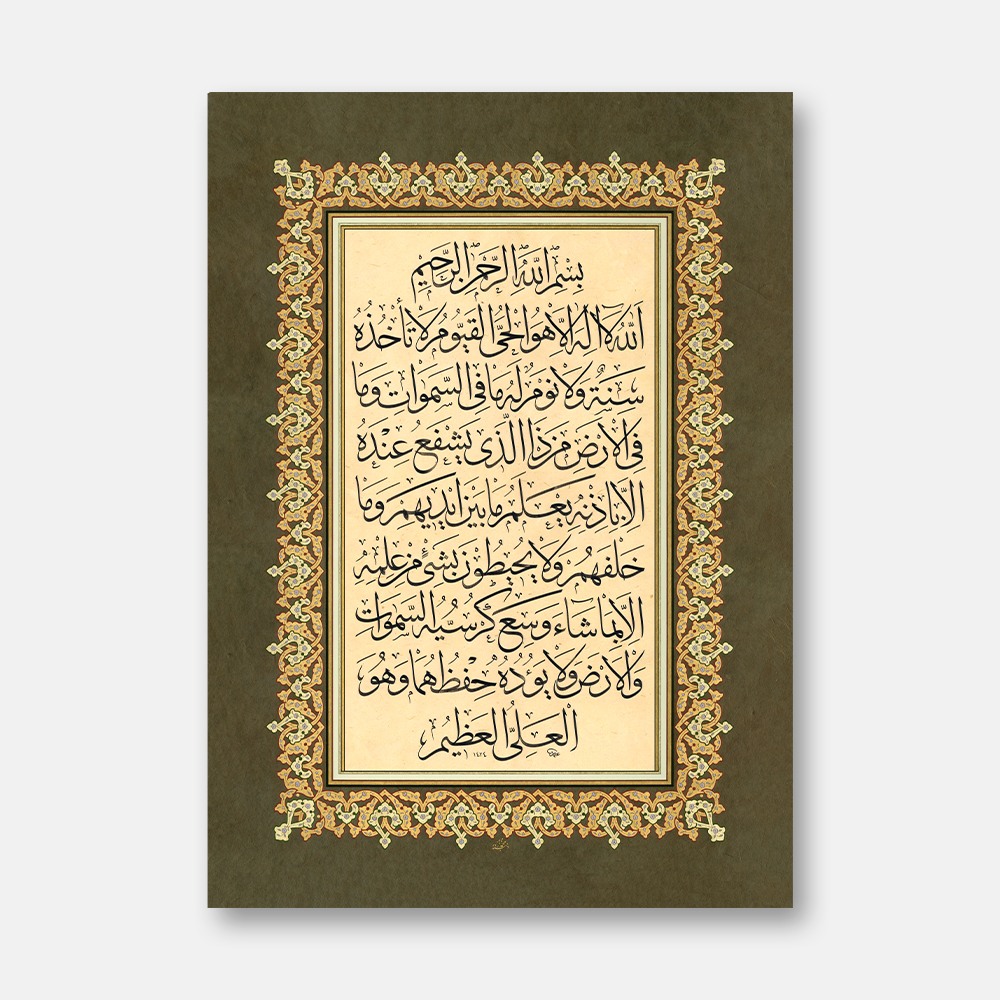 بسم الله الرحمن الرحيم
الله لا اله الا هو الحي القيوم لا تأخذه
سنة ولا نوم له ما في السموات وما
في الارض من ذا الذي يشفع عنده
الا باذنه يعلم ما بين ايديهم وما
خلفهم ولا يحيطون بشئ من علمه
الا بما شاء وسع كرسيه السموات
والارض ولا يؤده حفظهما وهو
العلي العظيم
١٤٢٤